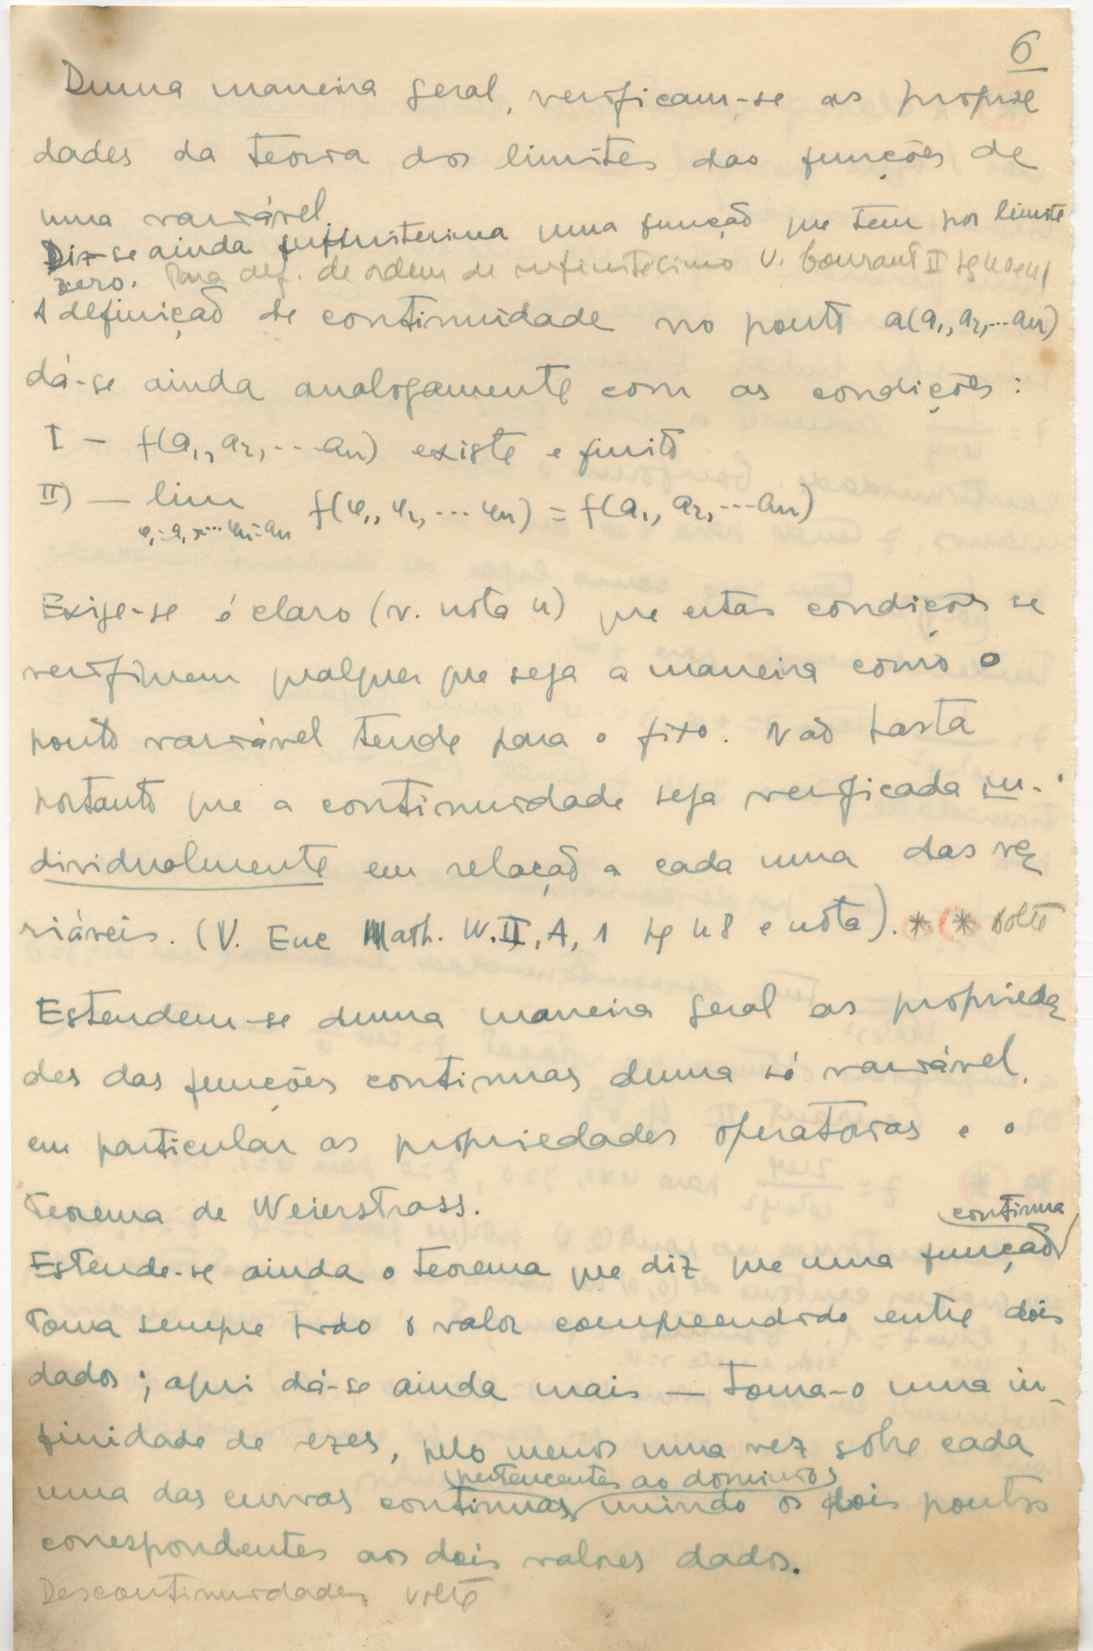 6
Duma maneira geral, verificam-se as proprie
dades da teoria dos limites das funções de
uma variável.
Diz-se ainda infinitesima uma função que tem por limite
zero. Para def. de ordem de infinitesimo V. Courant II pg
A definição de continuidade no ponto a(a₁, a₂, ... an)
dá-se ainda analogamente com as condições:
I – f(a₁, a₂, ... an) existe e finito
II) – lim f(φ₁, φ₂, ... φn) = f(a₁, a₂, ... an)
φ₁=a₁, ... φn=an
Exige-se é claro (v. nota 4) que estas condições se
verifiquem qualquer que seja a maneira como o
ponto variável tende para o fixo. Não basta
portanto que a continuidade seja verificada in-
dividualmente em relação a cada uma das va
riáveis. (V. Enc Math. W. II, A, 1 pg 48 e nota). * * Volte
Estendem-se duma maneira geral as proprieda
des das funções continuas duma só variável,
em particular as propriedades operatorias e o
Teorema de Weierstrass.
continua
Estende-se ainda o teorema que diz que uma função
toma sempre todo o valor compreendido entre dois
dados; aqui dá-se ainda mais – toma-o uma in-
finidade de ezes, pelo menos uma vez sobre cada
pertencentes ao dominio
uma das curvas continuas unindo os dois pontos
correspondentes aos dois valores dados.
Descontinuidades volte